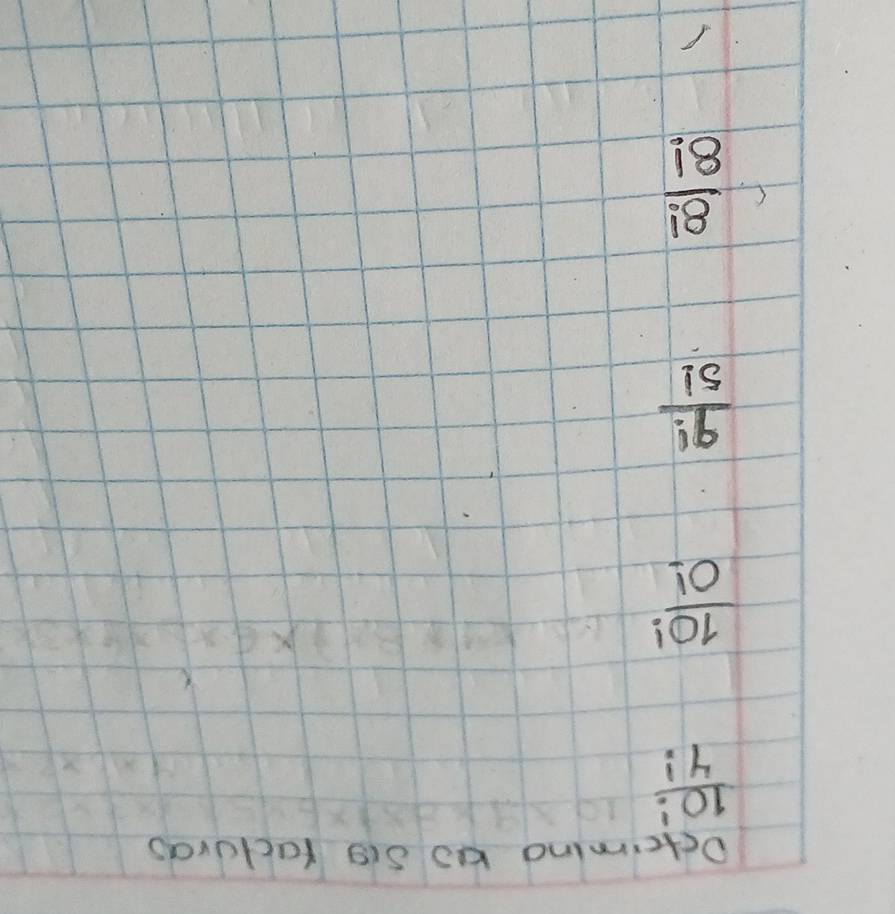 Determina las sig facturas
10!
4!
10!
0!
9!
5!
8!
8!